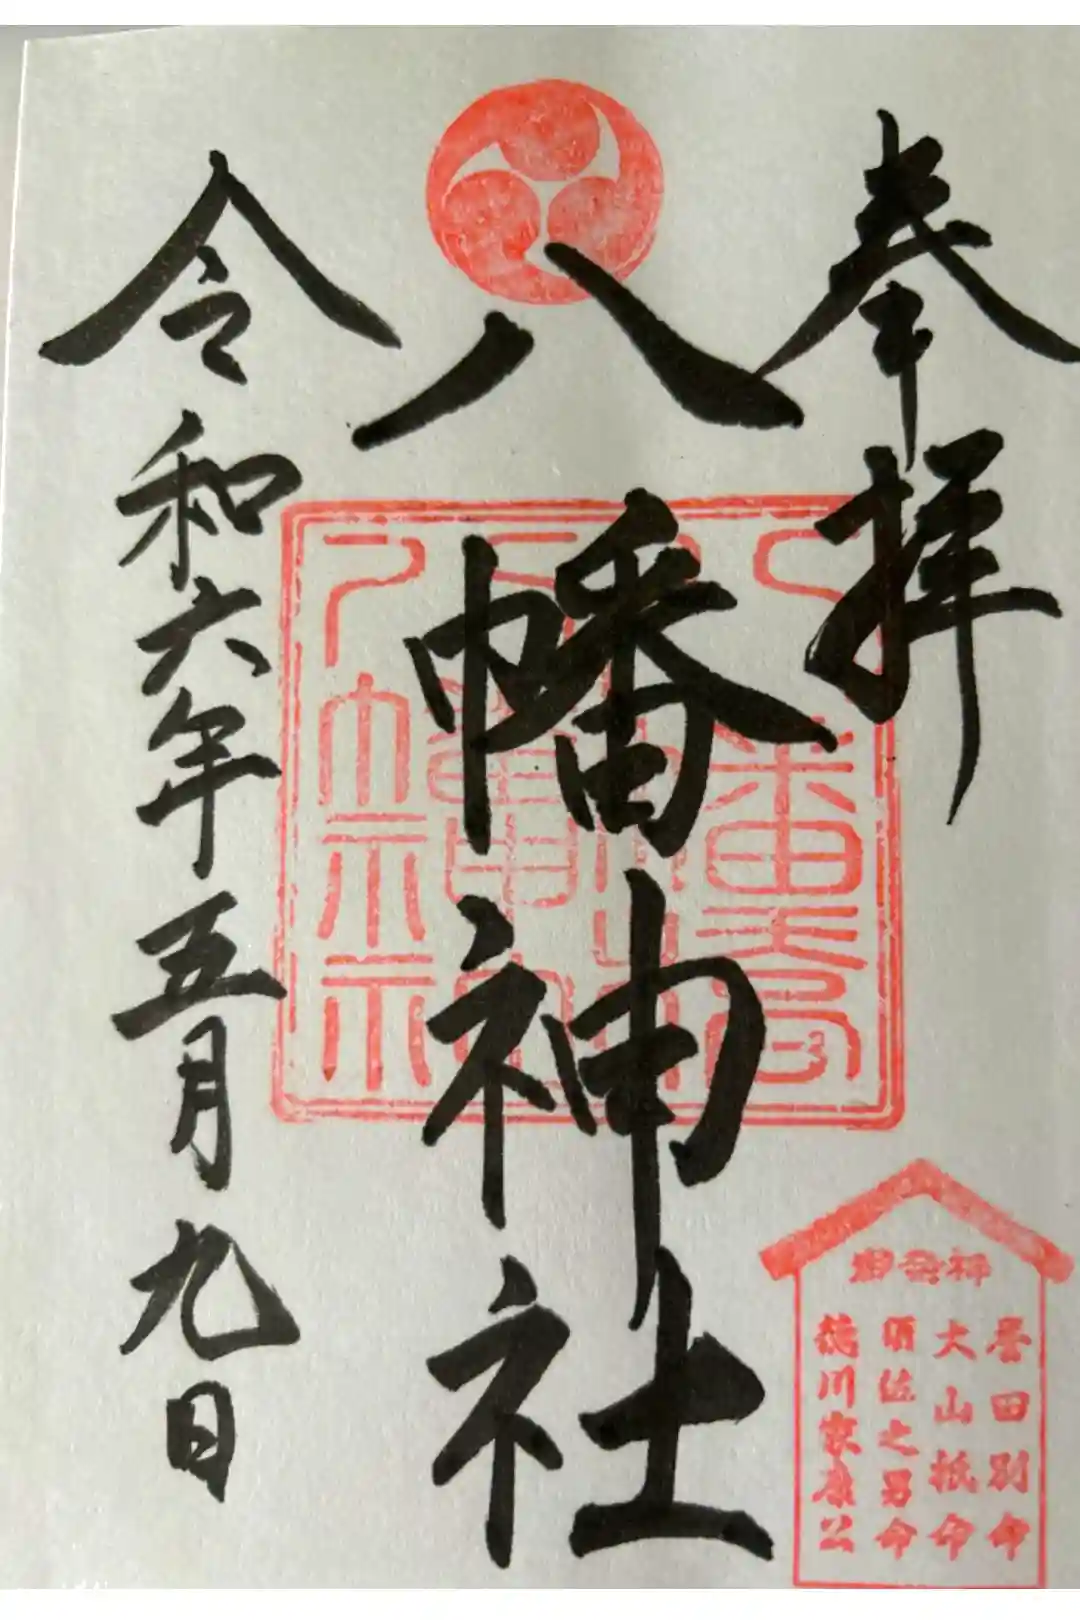 奉拝
八幡神社
令和六年五月九日
御祭神
誉田別命
大山祇命
須佐之男命
徳川家康公